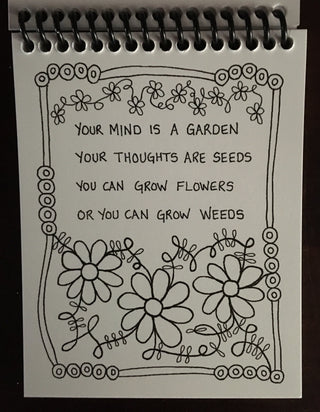 YOUR MIND IS A GARDEN
YOUR THOUGHTS ARE SEEDS
YOU CAN GROW FLOWERS
OR YOU CAN GROW WEEDS